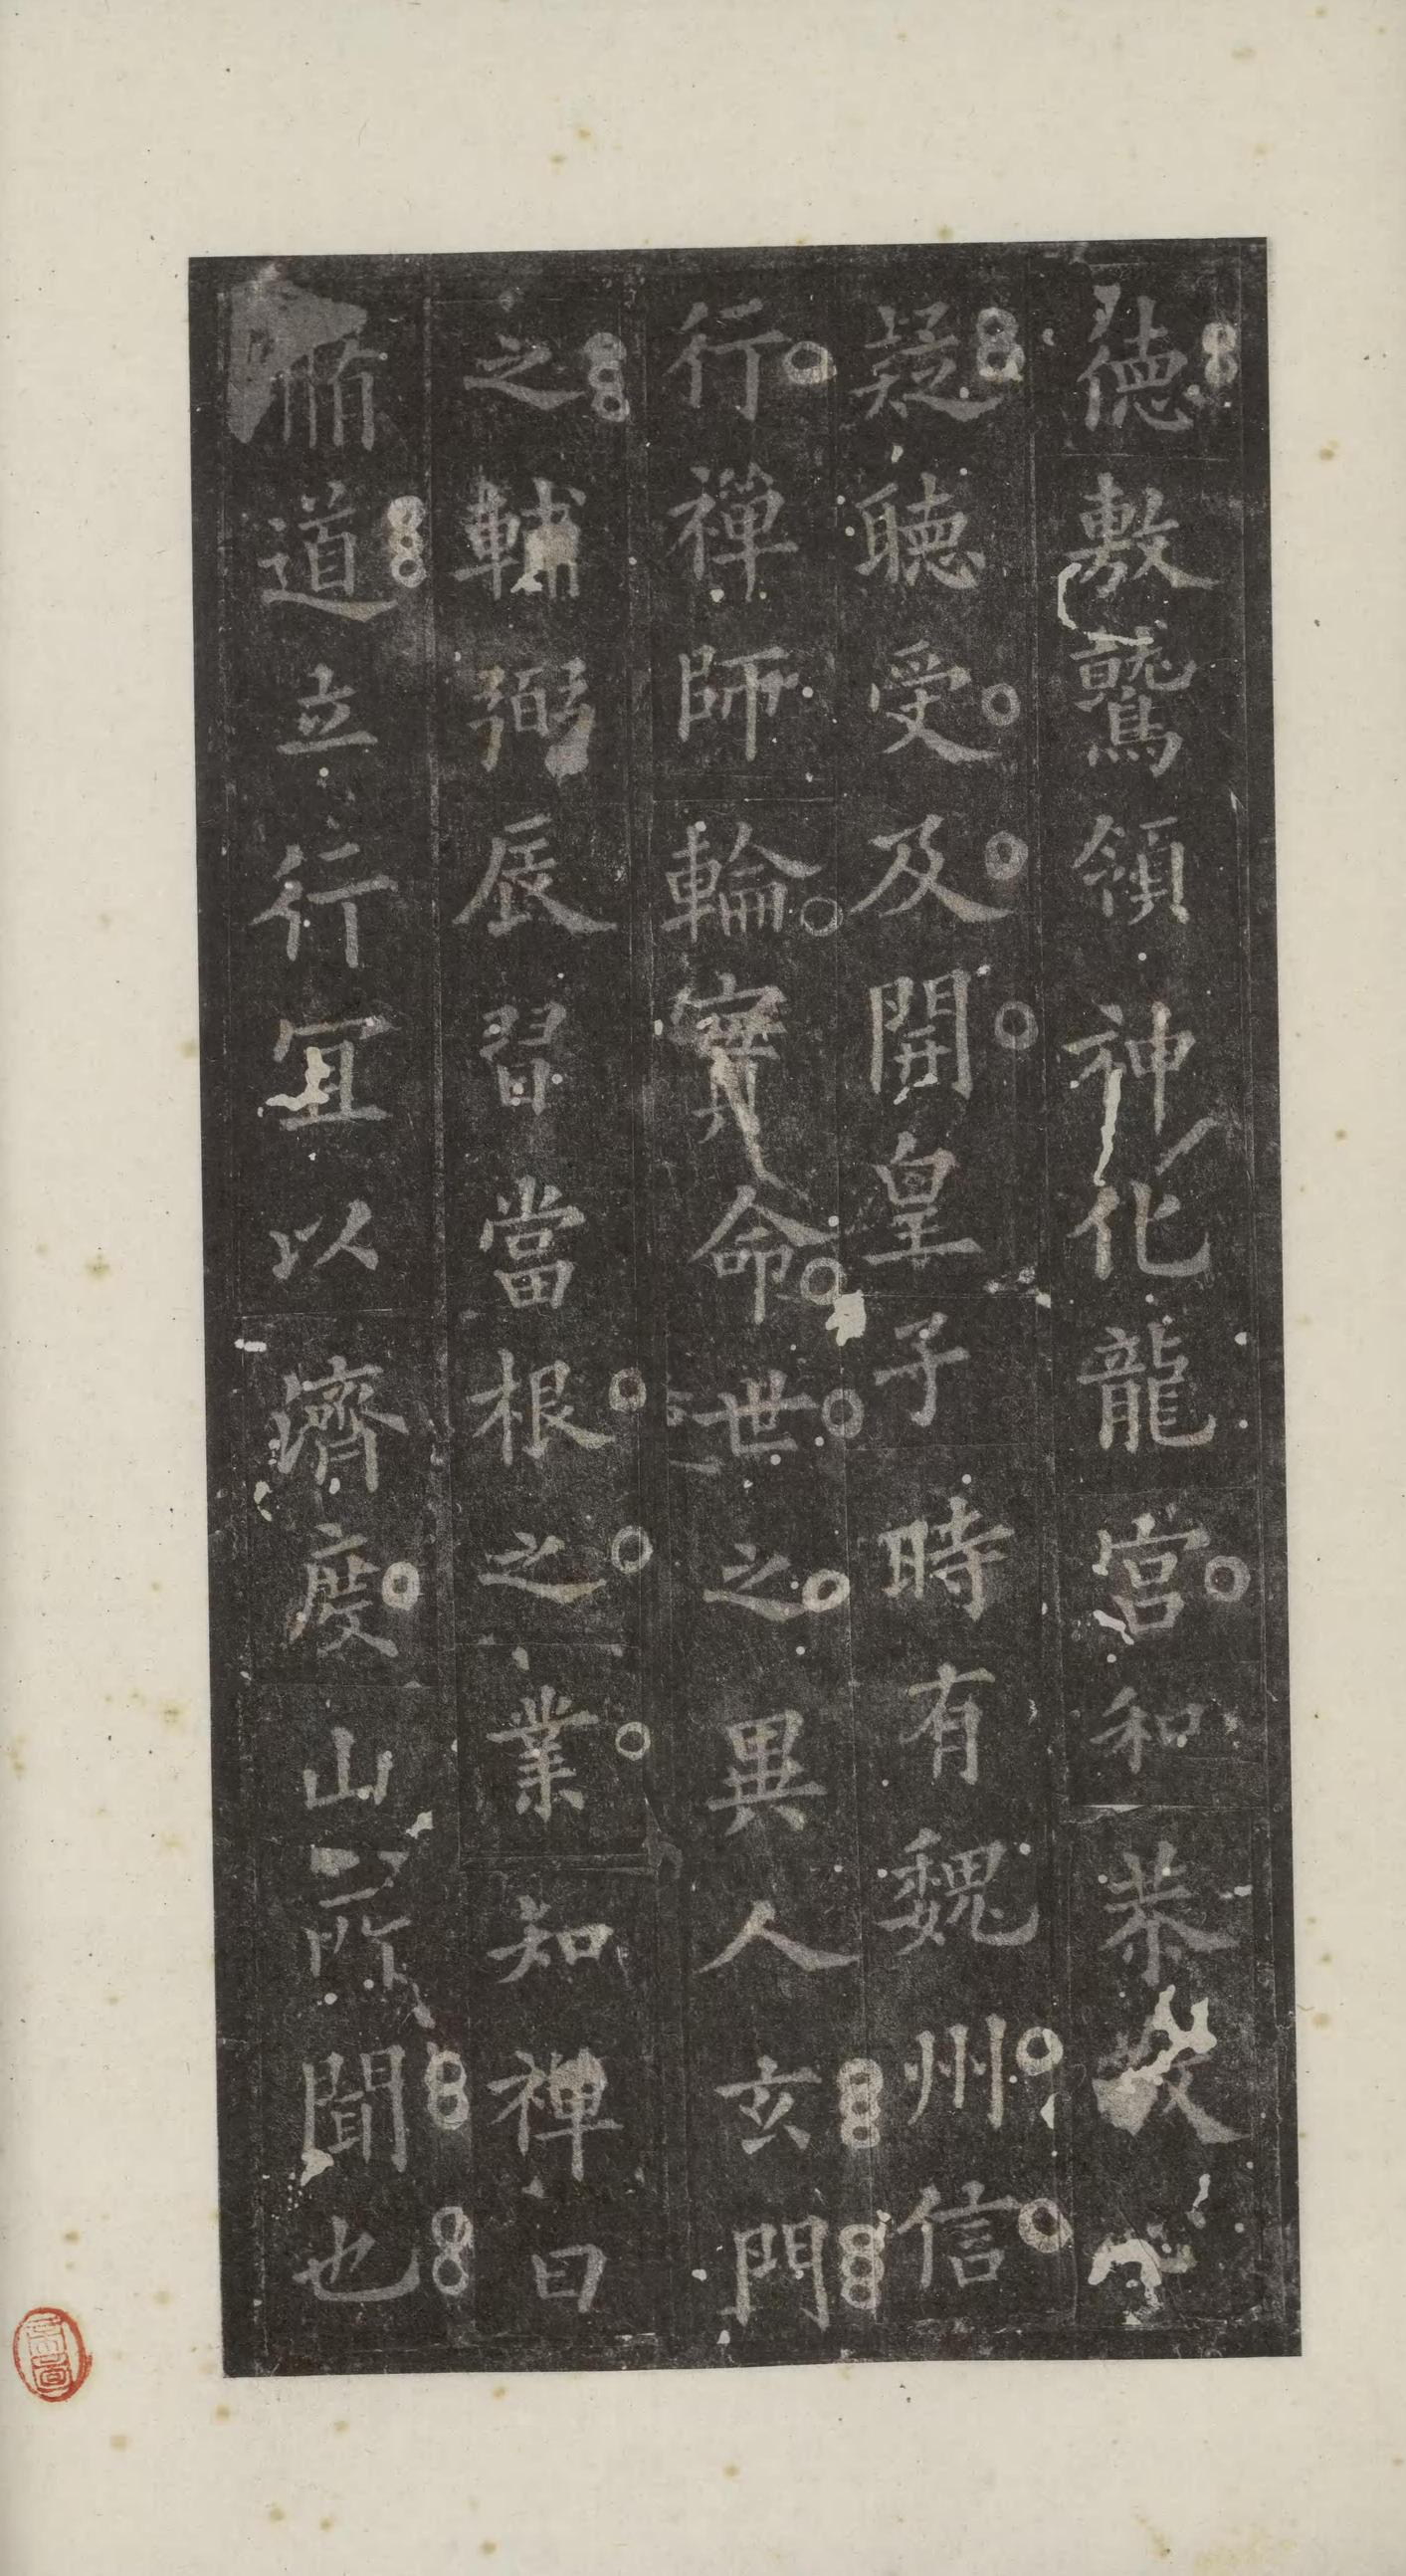 德敷鷲領神化龍宮和恭敬
疑聽受及開皇子時有魏州信
行禪師輪實命世之異人玄門
之輔弼辰習當根之業知禪曰
脩道立行宜以濟度山所聞也